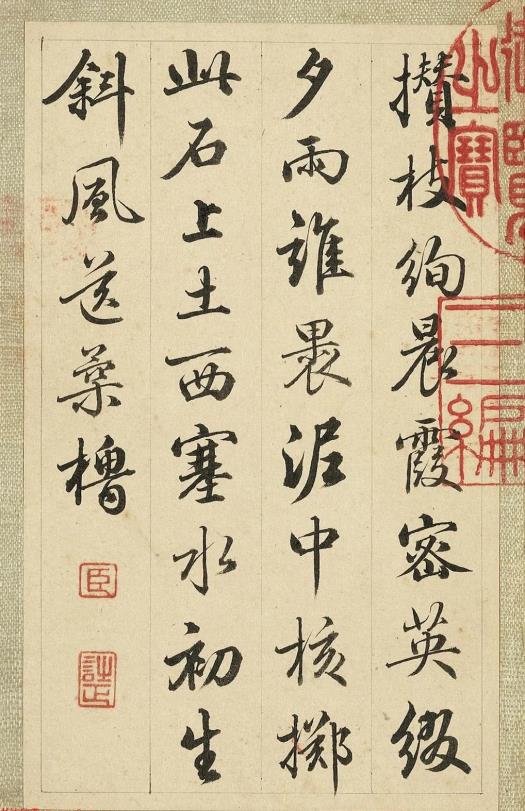 攢枝絢晨霞密英綴
夕雨誰褁泥中核擲
此石上土西塞水初生
斜風送蘭橹
臣